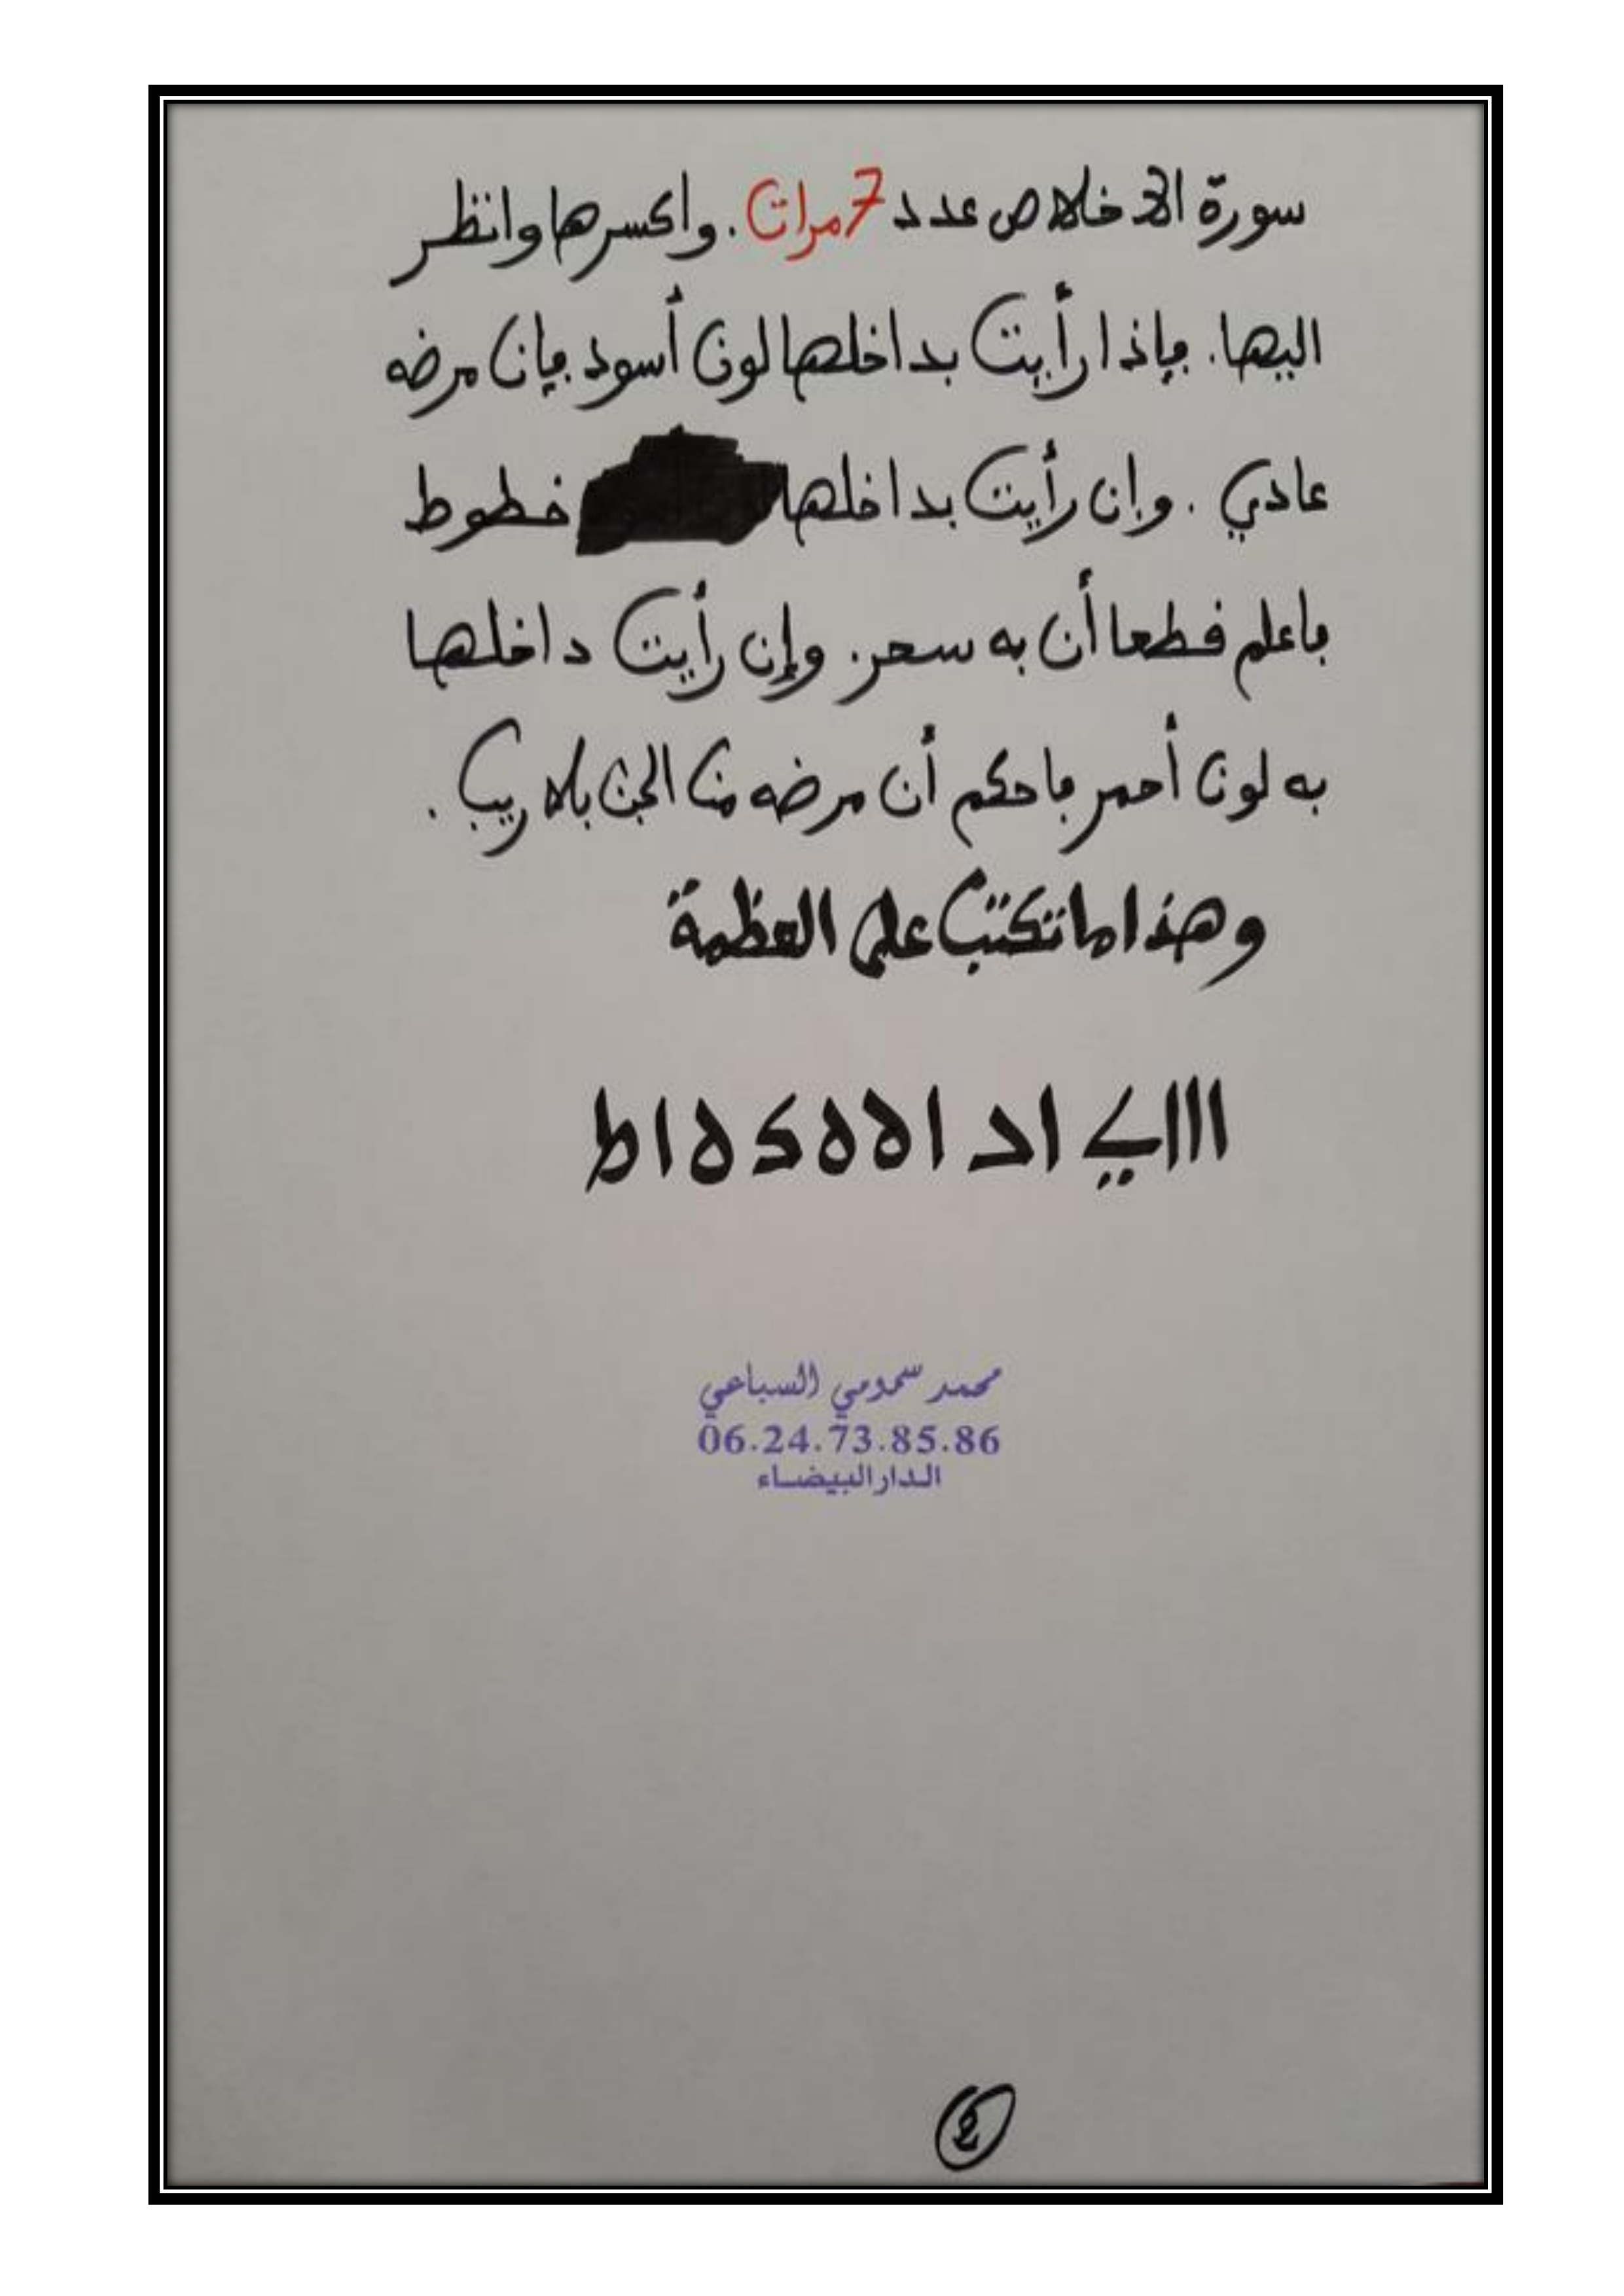 سورة الاخلاص عدد 7 مرات. واكسرها وانظر
اليها. فإذا رأيت بداخلها لون أسود فإن مرضه
عادي. وإن رأيت بداخلها خطوط
فاعلم قطعا أن به سحر. وإن رأيت داخلها
به لون أحمر فاحكم أن مرضه من الجن بلا ريب.
وهذا ما تكتب على العظمة
محمد سمومي السباعي
06.24.73.85.86
الدار البيضاء